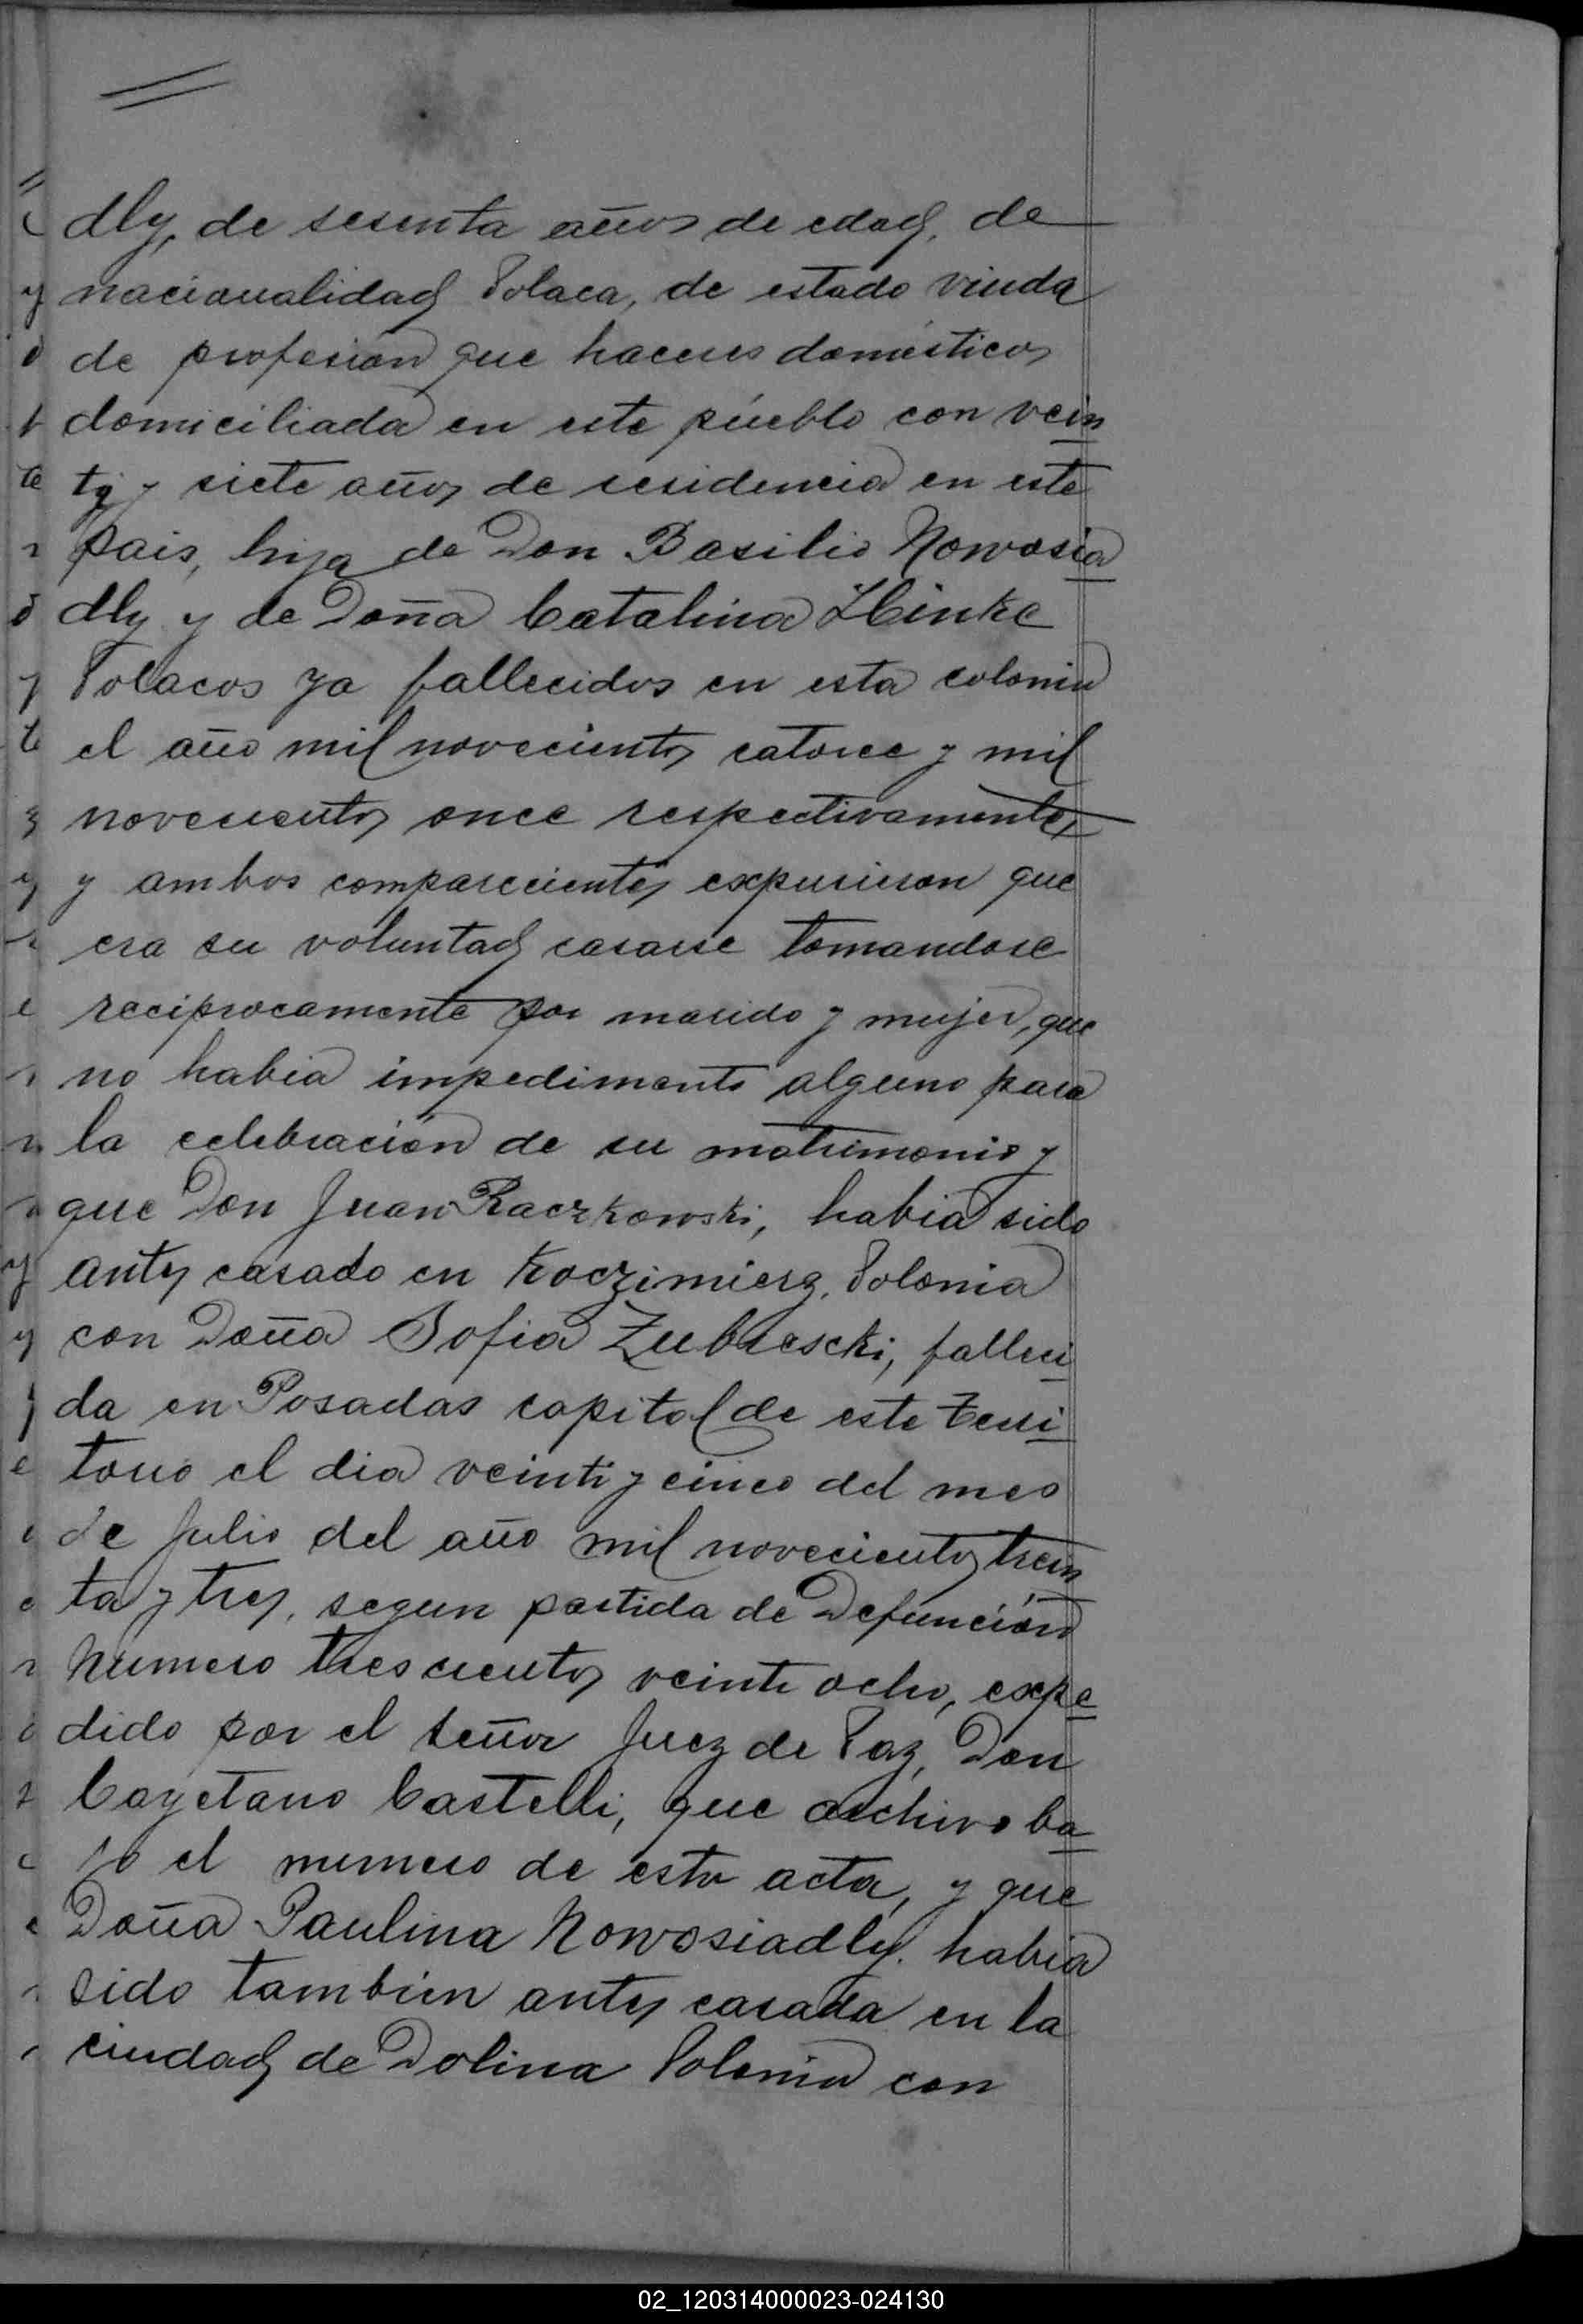 dly, de sesenta años de edad, de
nacionalidad Polaca, de estado viuda
de profesion que haceres domésticos
domiciliada en este pueblo con vein
ty y siete años de residencia en este
pais, hija de Don Basilio Nowosia
dly y de Doña Catalina
Polacos ya fallecidos en esta colonia
el año mil novecientos catorce y mil
novecientos once respectivamente,
y ambos comparecientes expusieron que
era su voluntad casarse tomandose
reciprocamente por marido y mujer, que
no habia impedimento alguno para
la celebración de su matrimonio y
que Don Juan Raczkowski, habia sido
antes casado en Koczimierz, Polonia
con Doña Sofia Zubrescki, falleci
da en Posadas capital de este Terri
torio el dia veinti y cinco del mes
de Julio del año mil novecientos trein
ta y tres, segun partida de Defunción
Número trescientos veinte ocho, expe
dido por el señor Juez de Paz, Don
Cayetano Castelli, que archivo ba
jo el numero de esta acta, y que
Doña Paulina Nowosiadly, habia
sido tambien antes casada en la
ciudad de Dolina Polonia con
02_120314000023-024130